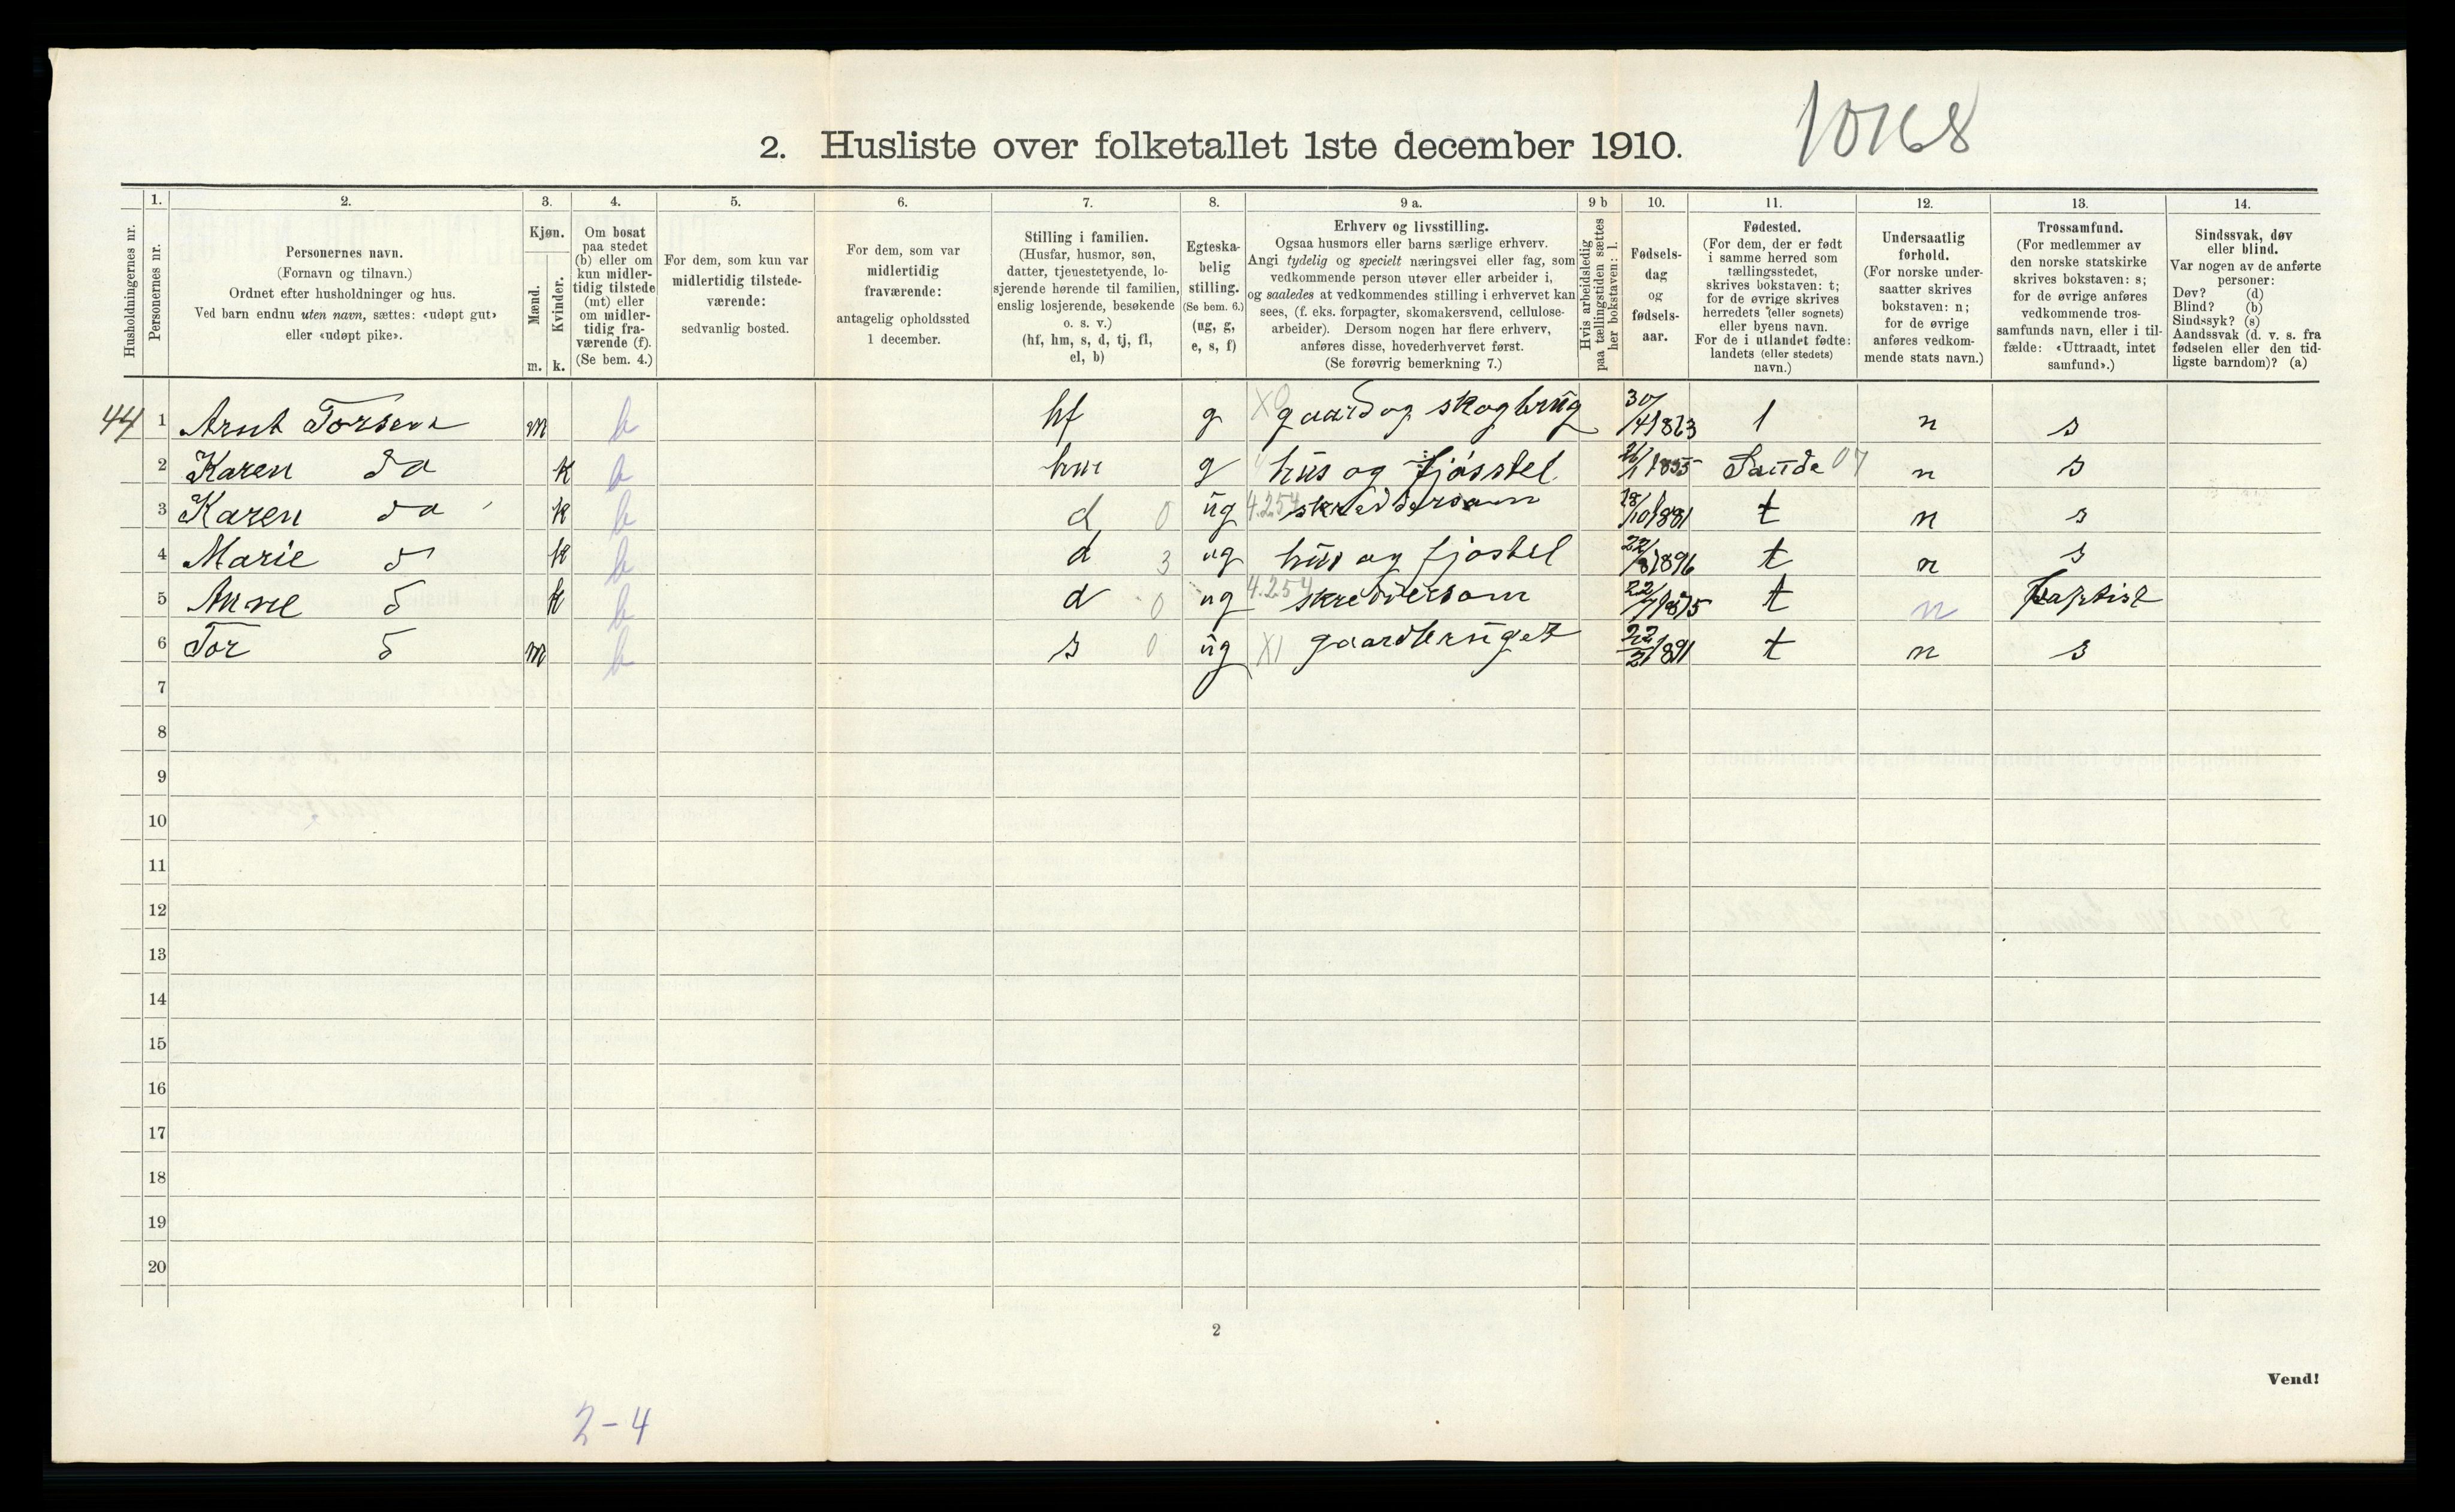 10168
2. Husliste over folketallet 1ste december 1910.
Husholdningernes nr.
1.
Personernes nr.
2.
Personernes navn.
(Fornavn og tilnavn.)
Ordnet efter husholdninger og hus.
Ved barn endnu uten navn, sættes: «udøpt gut»
eller «udøpt pike».
3.
Kjøn.
Mænd.
Kvinder.
m. k.
4.
Om bosat
paa stedet
(b) eller om
kun midler-
tidig tilstede
(mt) eller
om midler-
tidig fra-
værende (f).
(Se bem. 4.)
5.
For dem, som kun var
midlertidig tilstede-
værende:
sedvanlig bosted.
6.
For dem, som var
midlertidig
fraværende:
antagelig opholdssted
1 december.
7.
Stilling i familien.
(Husfar, husmor, søn,
datter, tjenestetyende, lo-
sjerende hørende til familien,
enslig losjerende, besøkende
o. s. v.)
(hf, hm, s, d, tj, fl,
el, b)
8.
Egteska-
belig
stilling.
(Se bem. 6.)
(ug, g,
e, s, f)
9 a.
Erhverv og livsstilling.
Ogsaa husmors eller barns særlige erhverv.
Angi tydelig og specielt næringsvei eller fag, som
vedkommende person utøver eller arbeider i,
og saaledes at vedkommendes stilling i erhvervet kan
sees, (f. eks. forpagter, skomakersvend, cellulose-
arbeider). Dersom nogen har flere erhverv,
anføres disse, hovederhvervet først.
(Se forøvrig bemerkning 7.)
9 b
Hvis arbeidsledig
paa tællingstiden sættes
her bokstaven: l.
10.
Fødsels-
dag
og
fødsels-
aar.
11.
Fødested.
(For dem, der er født
i samme herred som
tællingsstedet,
skrives bokstaven: t;
for de øvrige skrives
herredets (eller sognets)
eller byens navn.
For de i utlandet fødte:
landets (eller stedets)
navn.)
12.
Undersaatlig
forhold.
(For norske under-
saatter skrives
bokstaven: n;
for de øvrige
anføres vedkom-
mende stats navn.)
13.
Trossamfund.
(For medlemmer av
den norske statskirke
skrives bokstaven: s;
for de øvrige anføres
vedkommende tros-
samfunds navn, eller i til-
fælde: «Uttraadt, intet
samfund».)
14.
Sindssvak, døv
eller blind.
Var nogen av de anførte
personer:
Døv? (d)
Blind? (b)
Sindssyk? (s)
Aandssvak (d. v. s. fra
fødselen eller den tid-
ligste barndom)? (a)
44 1 Arnt Torsen m b hf g gaard og skogbrug 30/4 1863 t n s
2 Karen do k b hm g hus og fjøsstel 1855 Saude 07 n s
3 Karen do k b d 0 ug 4.254 skreddersøm 18/10 1881 t n s
4 Marie d k b d 3 ug hus og fjøstel 22/8 1896 t n s
5 Anne d k b d 0 ug 4.254 skreddersøm 22/7 1875 t n Baptist
6 Tor d m b s 0 ug X1 gaardbruget 22/2 1891 t n s
7
8
9
10
11
12
13
14
15
16
17
18
19
20
2
Vend!
2-4